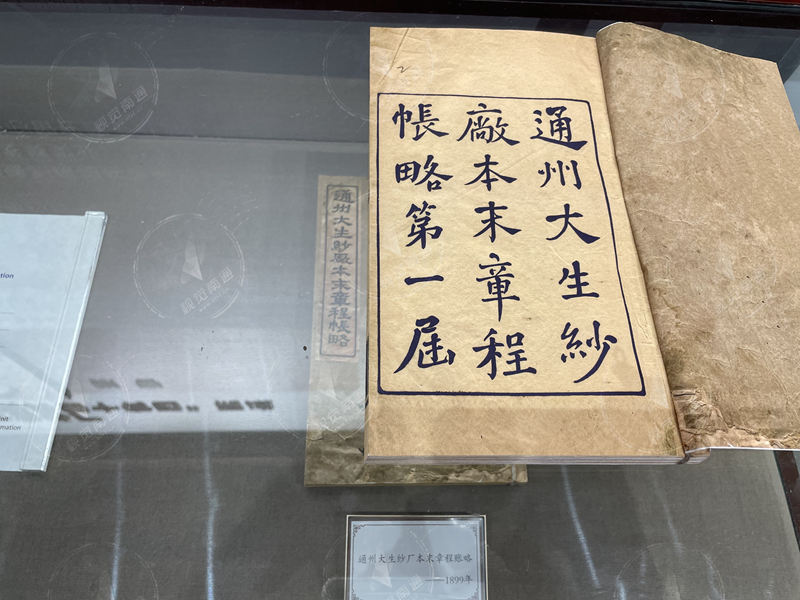 通州大生紗
廠本末章程
帳略第一屆
通州大生紗廠本末章程帳略
通州大生纱厂本末章程账略
——1899年
tion
isit
mation